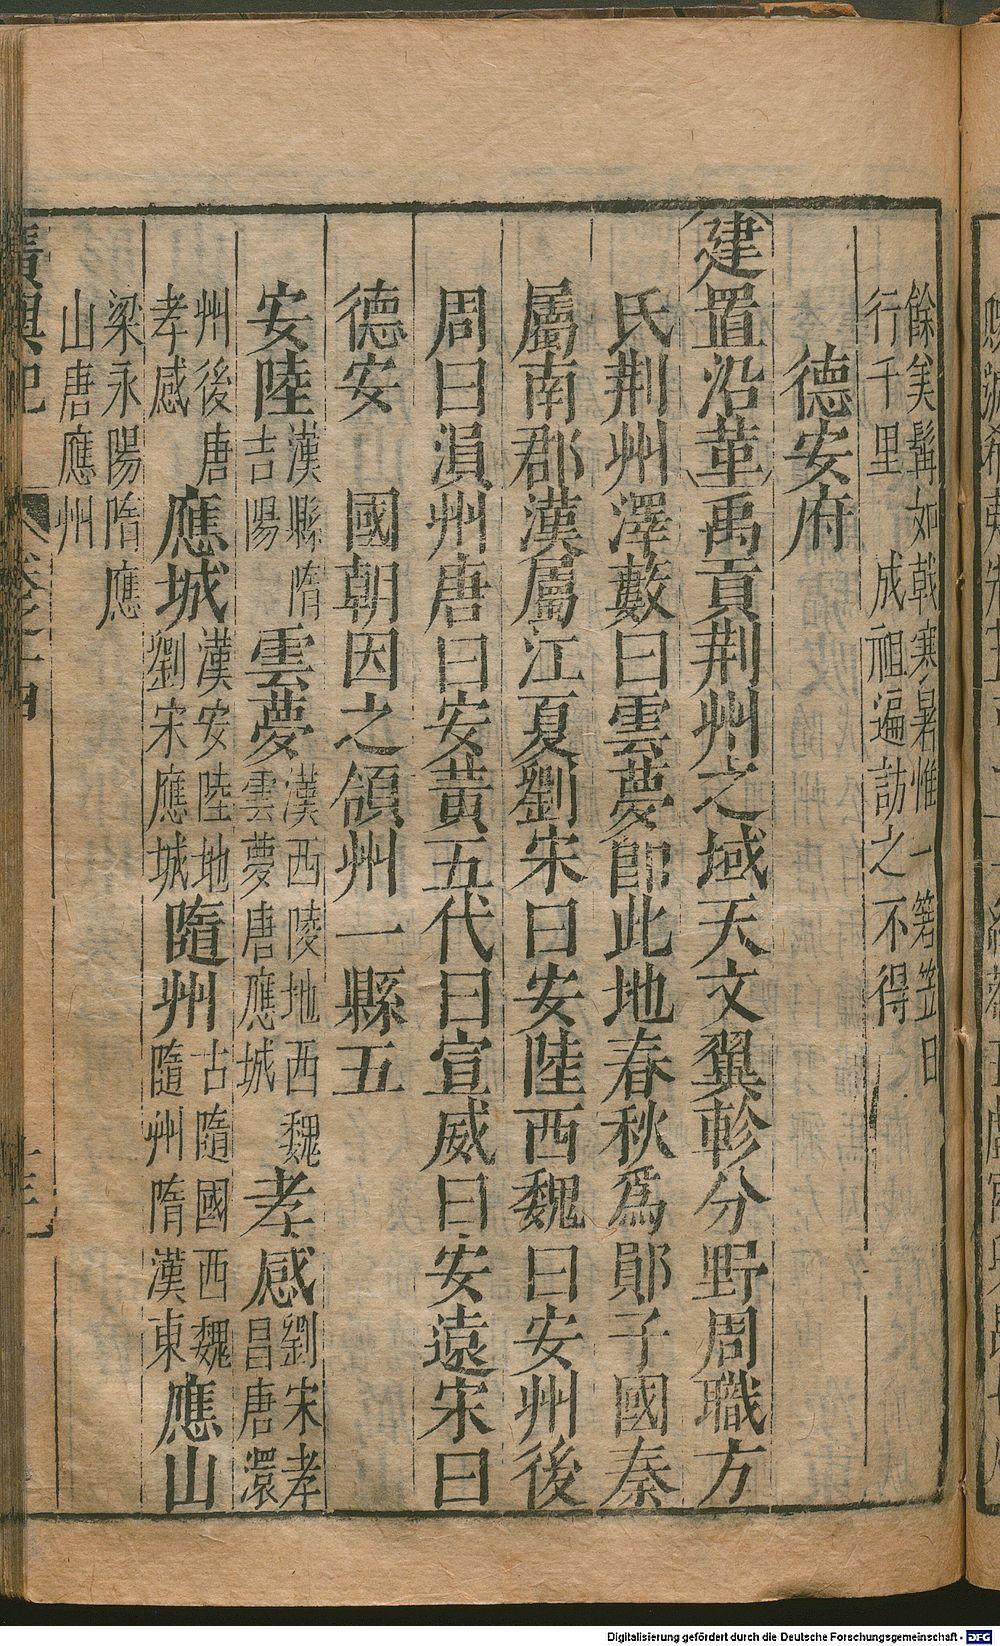 餘矣髯如戟寒暑惟一箬笠日
行千里　成祖遍訪之不得
德安府
建置沿革禹貢荆州之域天文翼軫分野周職方
氏荆州澤藪曰雲夢卽此地春秋爲鄖子國秦
屬南郡漢屬江夏劉宋曰安陸西魏曰安州後
周曰溳州唐曰安黃五代曰宣威曰安遠宋曰
德安　國朝因之領州一縣五
安陸漢縣隋吉陽雲夢漢西陵地西魏雲夢唐應城孝感劉宋孝昌唐澴
州後唐孝感應城漢安陸地劉宋應城隨州古隨國西魏隨州隋漢東應山
梁永陽隋應山唐應州
廣輿記　卷之十四
Digitalisierung gefördert durch die Deutsche Forschungsgemeinschaft - DFG